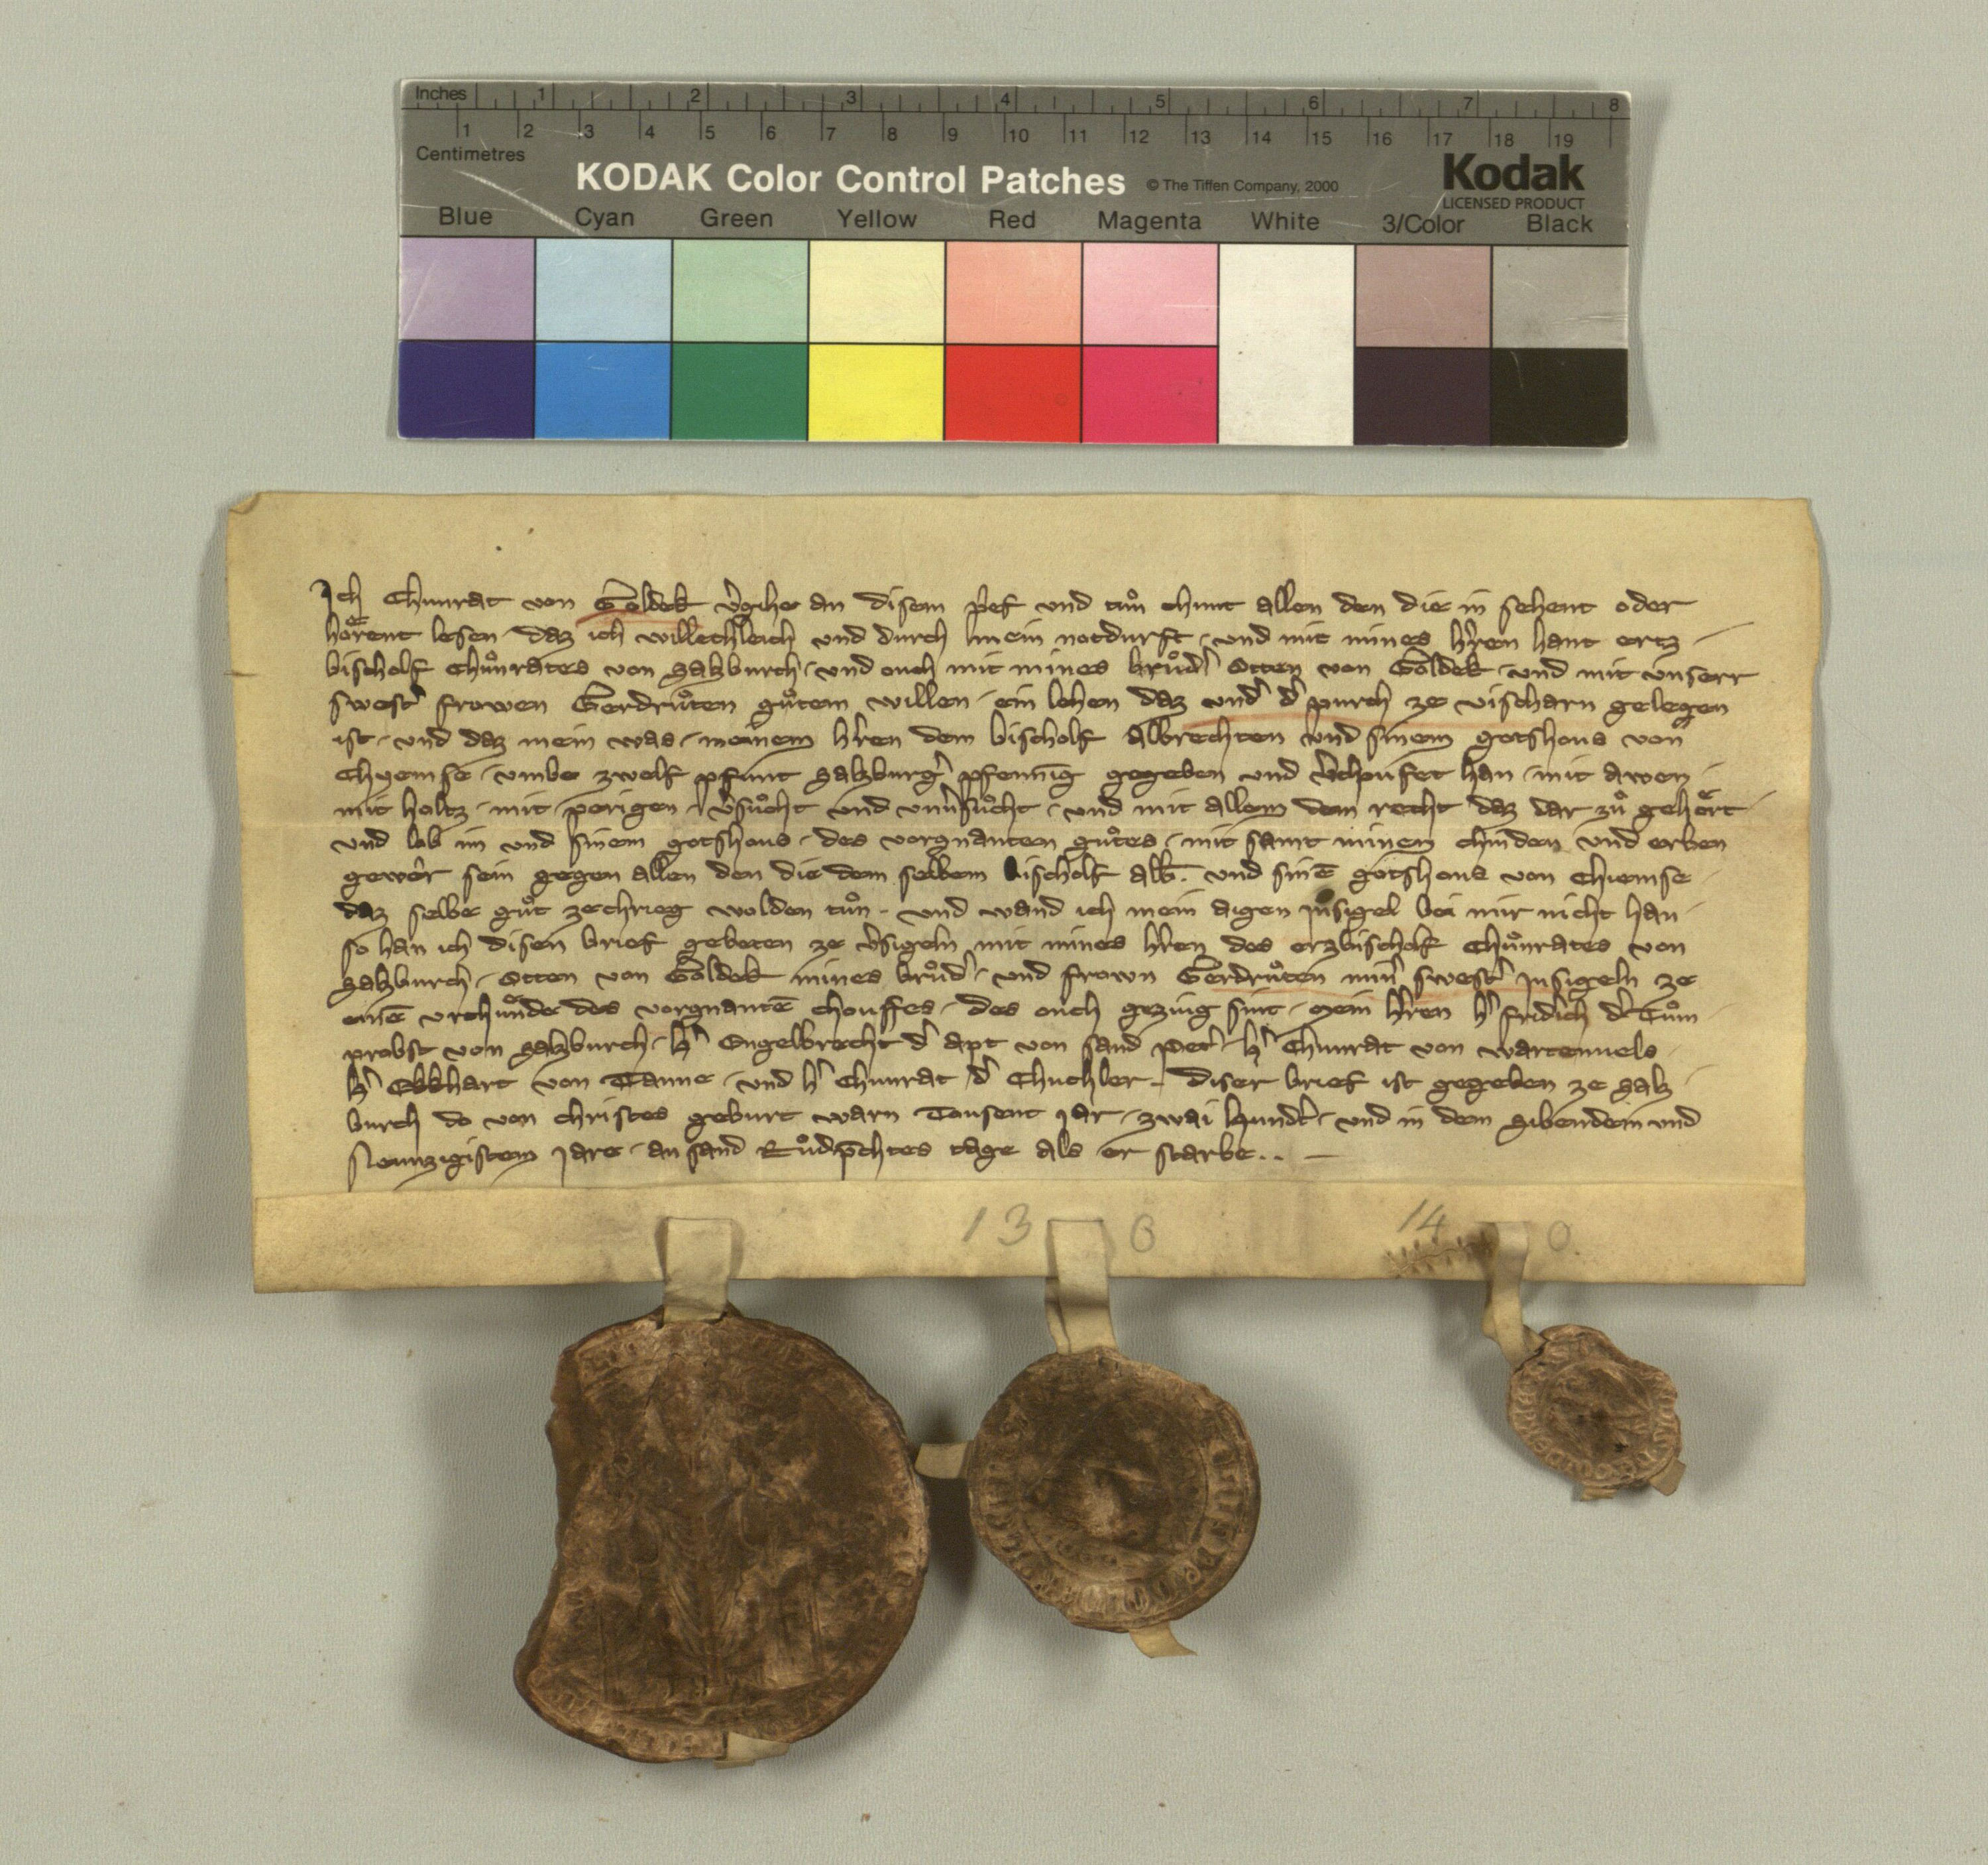 Inches 1 2 3 4 5 6 7 8
1 2 3 4 5 6 7 8 9 10 11 12 13 14 15 16 17 18 19
Centimetres
KODAK Color Control Patches © The Tiffen Company, 2000 Kodak
LICENSED PRODUCT
Blue Cyan Green Yellow Red Magenta White 3/Color Black
Ich Chunrat von Goldek v̾gihe an disem p̾ef und tuͦn chunt allen den die in sehent oder
hoͤrent lesen daz ich willechleich und durch mein notdurft · und mit mines h̾ren hant ertz-
bischolf Chuͦnrates von Salzburch · und ouch mit mines bruͦd̾ Otten von Goldek · und mit unserr
swest̾ frowen Gerdruͦten guͦtem willen · ein lehen daz und̾ d̾ purch ze vischarn gelegen
ist · und daz mein was · meinem h̾ren dem bischolf Albrechten und sinem gotshous von
Chyemse · umbe zwelf pfunt Salzburg̾ pfenning gegeben und v̾choufet han · mit awen ·
mit holtz · mit perigen · v̾suͦcht und unv̾suͦcht · und mit allem dem recht daz dar zuͦ gehoͤrt
und lob im und sinem gotshous · des vorgnanten guͦtes · mit samt minem chinden und erben
gewer sein gegen allen den die dem selbem bischolf Alb̄. und sinē gotshous von Chiemse
daz selbe guͦt ze chrieg wolden tuͦn · und wand ich mein aigen jnsigel bei mir nicht han ·
so han ich disen brief gebeten ze v̾sigeln mit mines h̾ren des erzbischolf Chuͦnrates von
Salzburch · Otten von Goldek mines bruͦd̾ · und frown Gerdruͦten min̾ swest̾ jnsigeln ze
einē urchuͤnde des vorgnantē chouffes · des ouch gezuig sint · mein h̾ren h̾ Fridich d̾ Tuͦm-
probst von Salzburch · h̾ Engelbrecht d̾ apt von sand Pet̾ · h̾ Chunrat von Wartenuels
h̾ Ekkhart von Tanne · und h̾ Chunrat d̾ Chuchler · diser brief ist gegeben ze Salz-
burch do von christes geburt warn Tousent jar · zwai hund̾t · und in dem sibendem und
Neunzigistem jare · an sand Ruͦdp̄chtes tage als er starbe . . —
13 0 14 0.